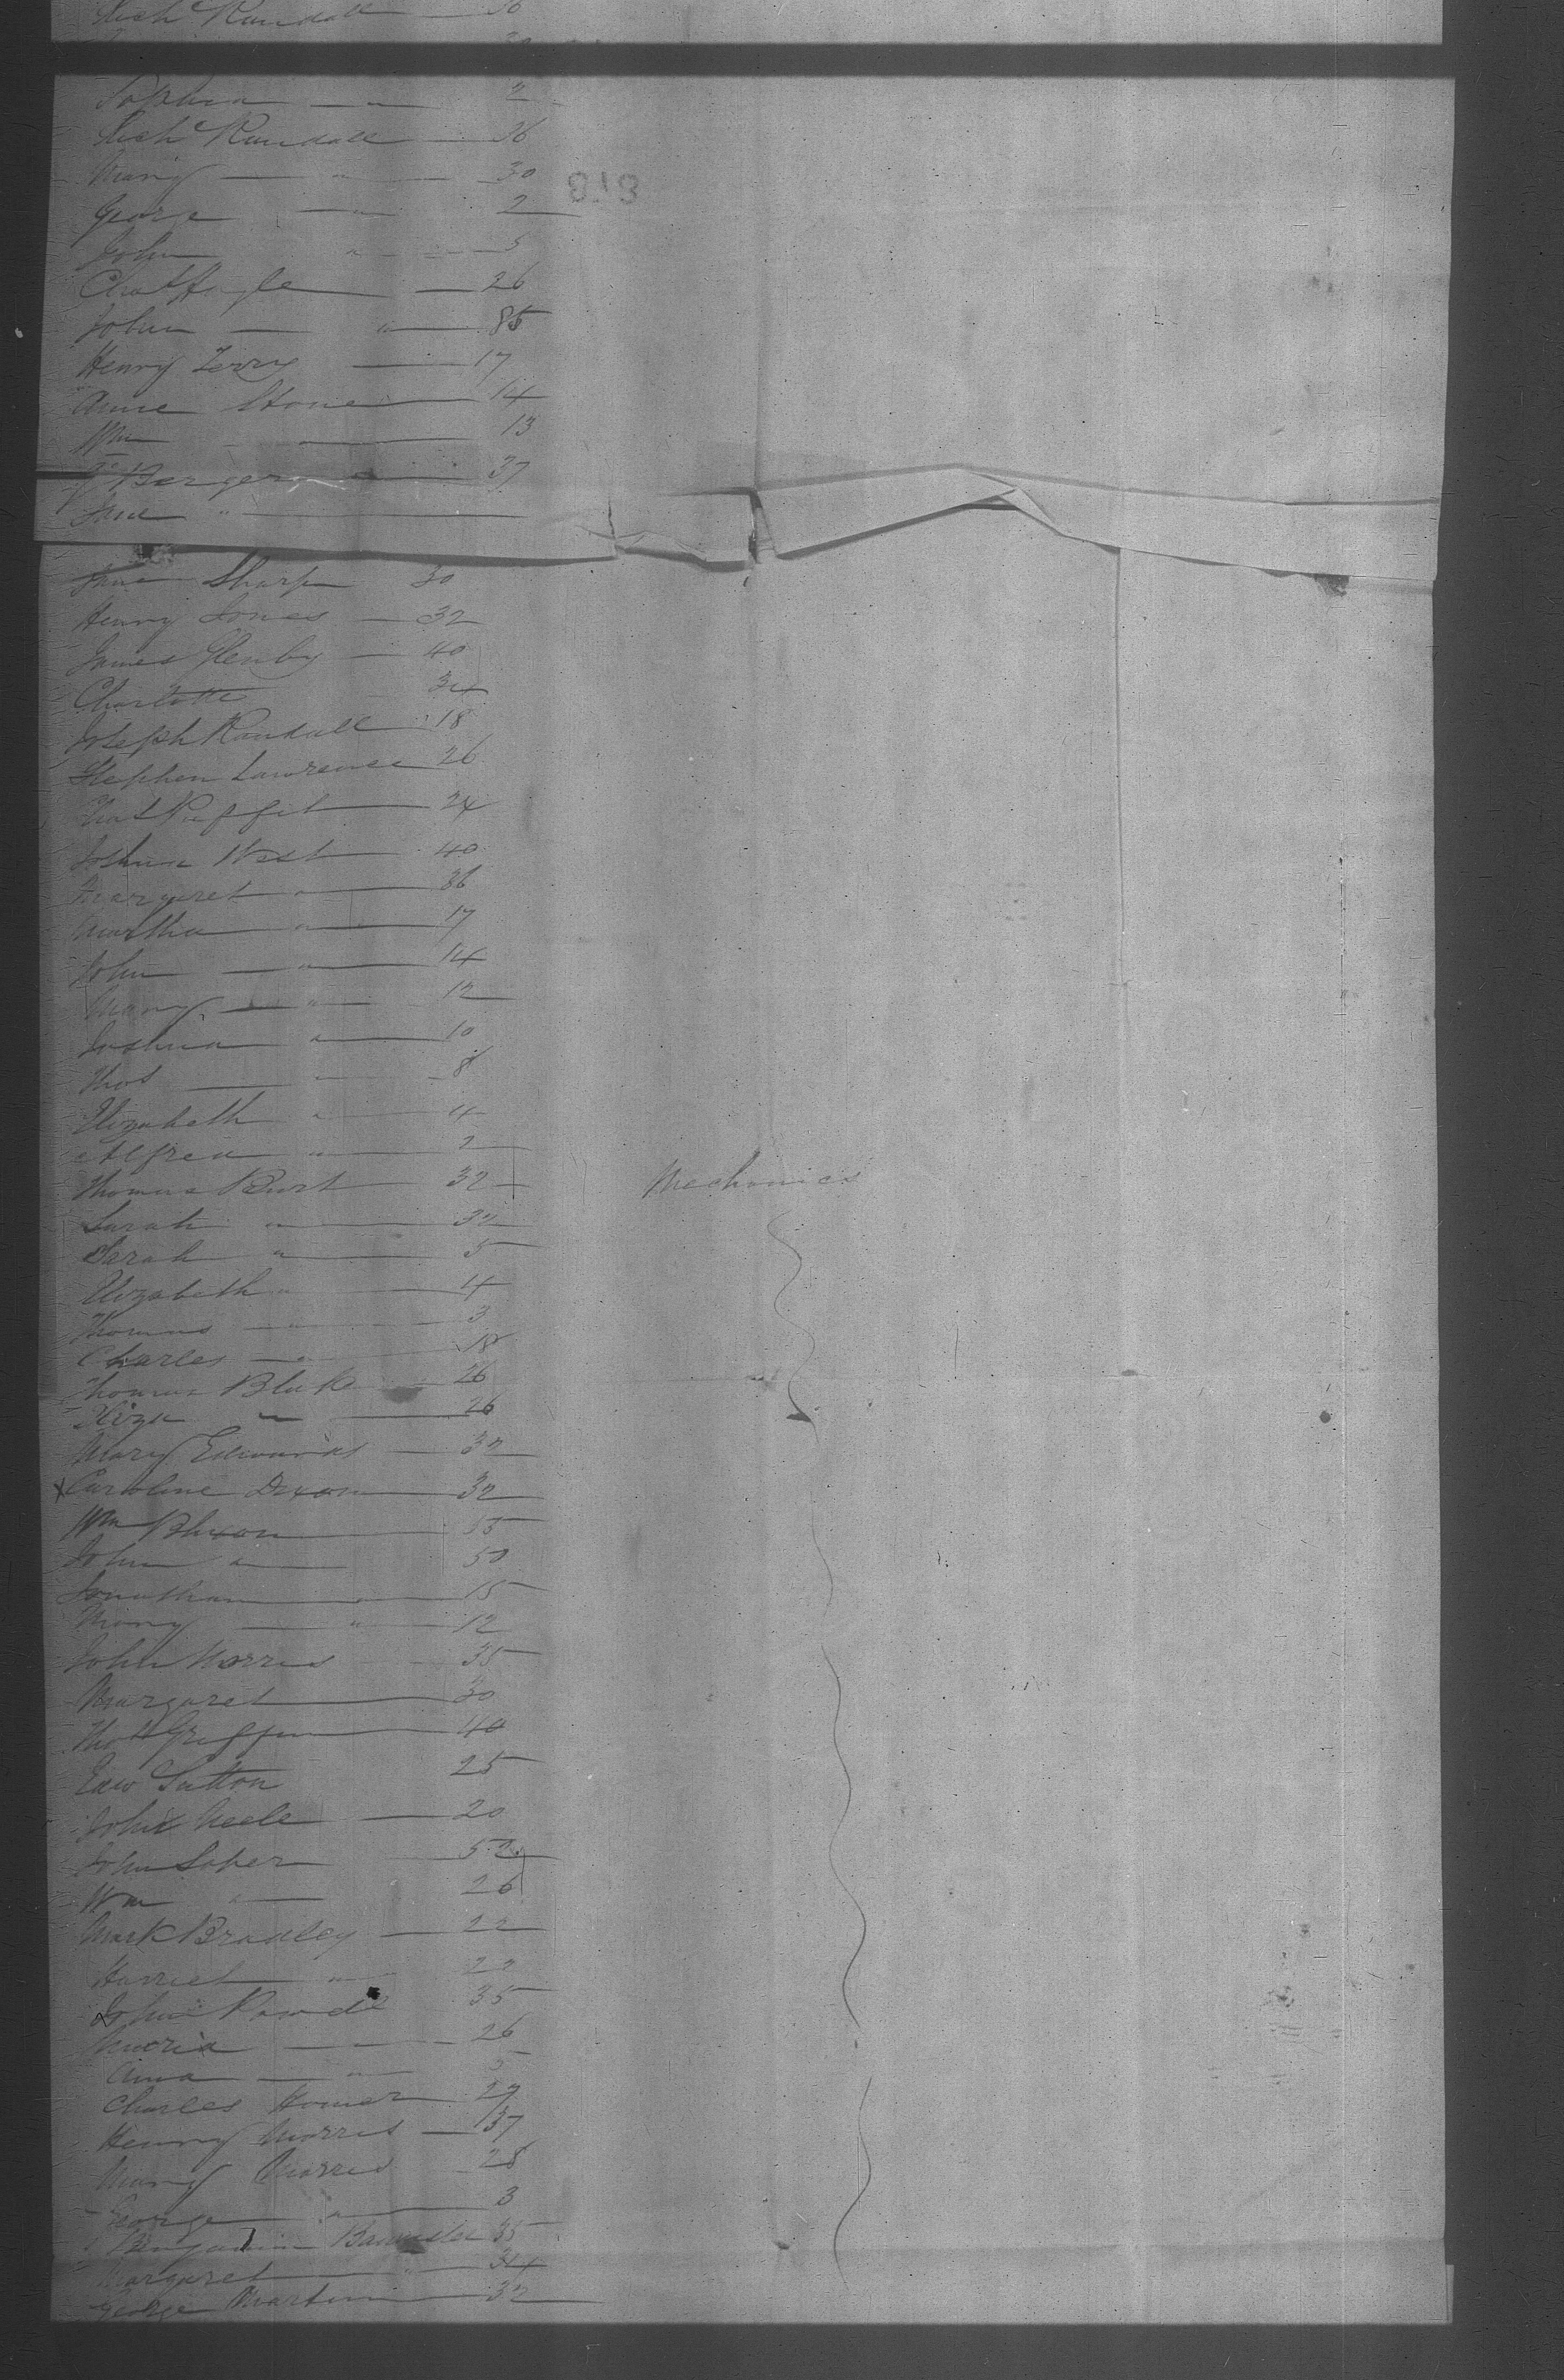 Rich Randall — 36
Sophia — " — 2
Rich Randall — 36
Mary — " — 30
George — " — 2
John " — 5
26
John — " — 85
Henry Terry — 17
Anne Stone — 14
Wm — 13
Berger — 37
Jane " —
Jane Sharp 30
Henry Jones — 32
James Glenby — 40
Charlotte 34
Joseph Randall 18
Stephen Lawrence 26
24
Joshua West 40
Margaret " — 36
Martha " — 17
John — " — 14
Mary — " — 12
Joshua " — 10
Thos — " — 8
Elizabeth " — 4
Alfred " — 2
Thomas Burt — 32 Mechanics
Sarah " — 32
Sarah " — 5
Elizabeth " — 4
Thomas — " — 3
Charles — " — 18
Thomas Blake 26
Eliza " — 26
Mary Edwards — 32
x Caroline Dixon — 32
Wm Blixon — 55
John " — 50
Jonathan — " — 15
Mary — " — 12
John Norris 35
Margaret — 30
Thos Griffin — 40
Edw Sutton 25
John Neele — 20
John Soper — 52
Wm " — 26
Mark Bradley — 22
Harriet — " — 22
John Powell 35
Maria — " — 26
Anna — " — 5
Charles Homer — 27
Henry Morris — 37
Mary Morris — 28
George " — 3
Benjamin 35
Margaret — " — 34
George Martin — 32